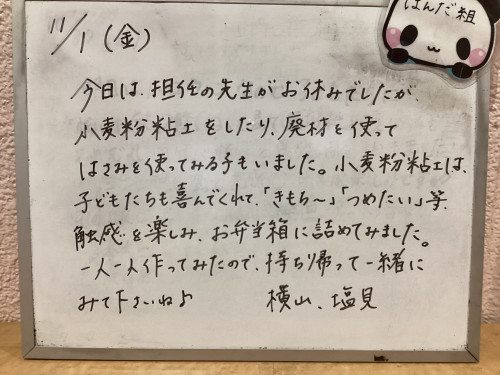 ぱんだ組
11/1(金)
今日は、担任の先生がお休みでしたが、
小麦粉粘土をしたり、廃材を使って
はさみを使ってみる子もいました。小麦粉粘土は、
子どもたちも喜んでくれて、「きもち〜」「つめたい」等、
触感を楽しみ、お弁当箱に詰めてみました。
一人一人作ってみたので、持ち帰って一緒に
みて下さいね♪
横山、塩見